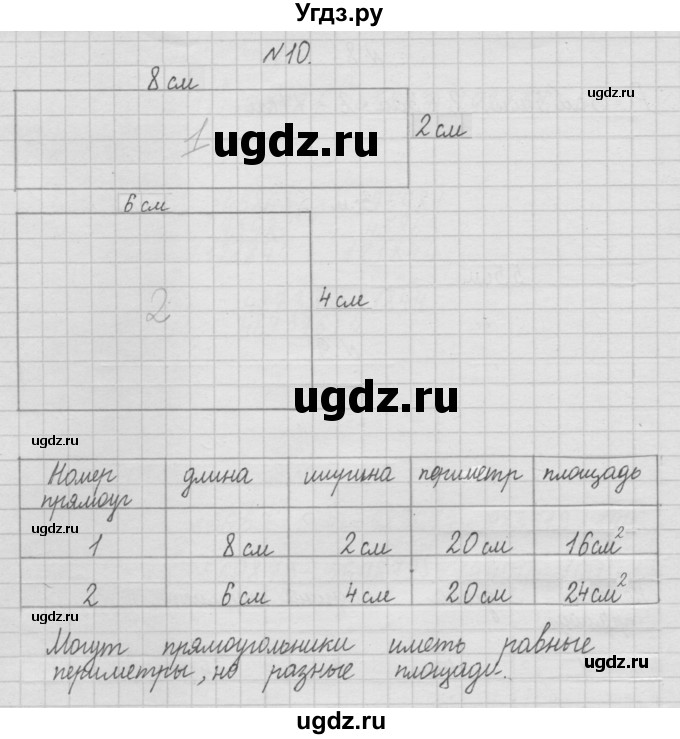 Угдз.ру
№10.
8 см
ugdz.ru
1
ugdz.ru
2 см
6 см
2
4 см
ugdz.ru
ugdz.ru
ugdz.ru
Номер прямоуг	длина	ширина	периметр	площадь
ugdz.ru
1	8 см	2 см	20 см	16 см²
2	6 см	4 см	20 см	24 см²
ugdz.ru
Могут прямоугольники иметь равные
ugdz.ru
периметры, но разные площади.
ugdz.ru